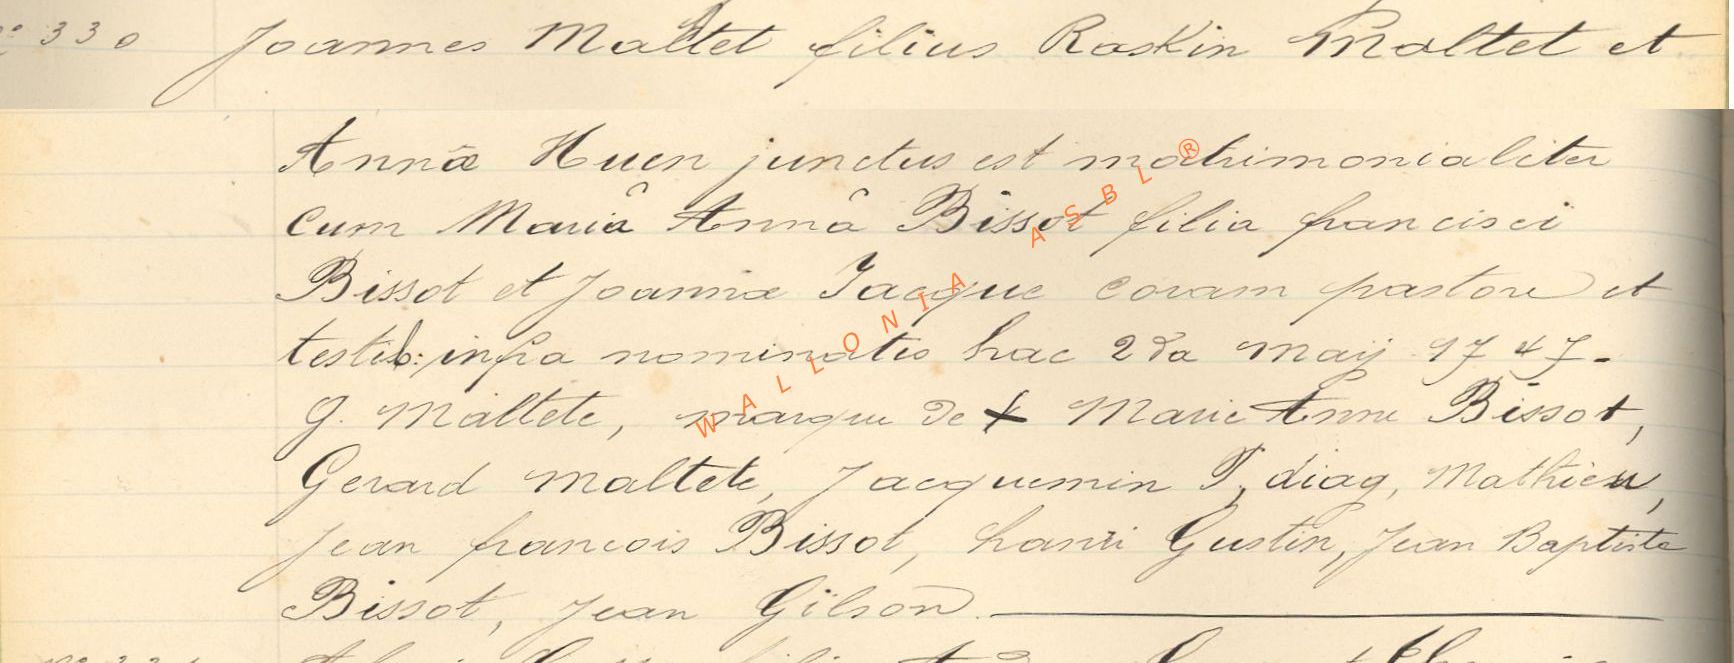 N° 330 Joannes Maltet filius Raskin Maltet et
Annæ Huen junctus est matrimonialiter
cum Mariâ Annâ Bissot filia francisci
Bissot et Joannæ Jacque coram pastore et
testib: infra nominatis hac 2da maij 1747-
G. Maltete, marque de + Marie Anne Bissot,
Gerard maltete, Jacquemin P, diag, Mathieu,
Jean francois Bissot, hanri Gustin, Jean Baptiste
Bissot, Jean Gilson
WALLONIA ASBL®